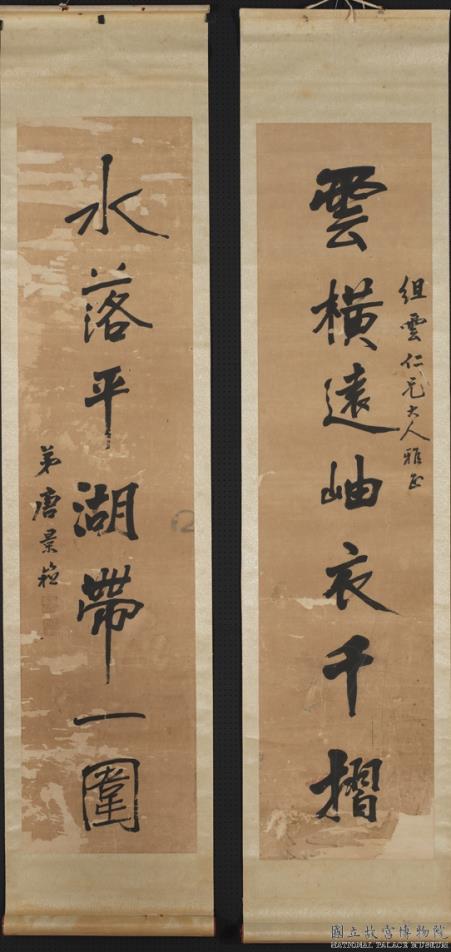 組雲仁兄大人雅正
雲橫遠岫衣千摺
水落平湖帶一圍
弟唐景崧
國立故宮博物院
NATIONAL PALACE MUSEUM